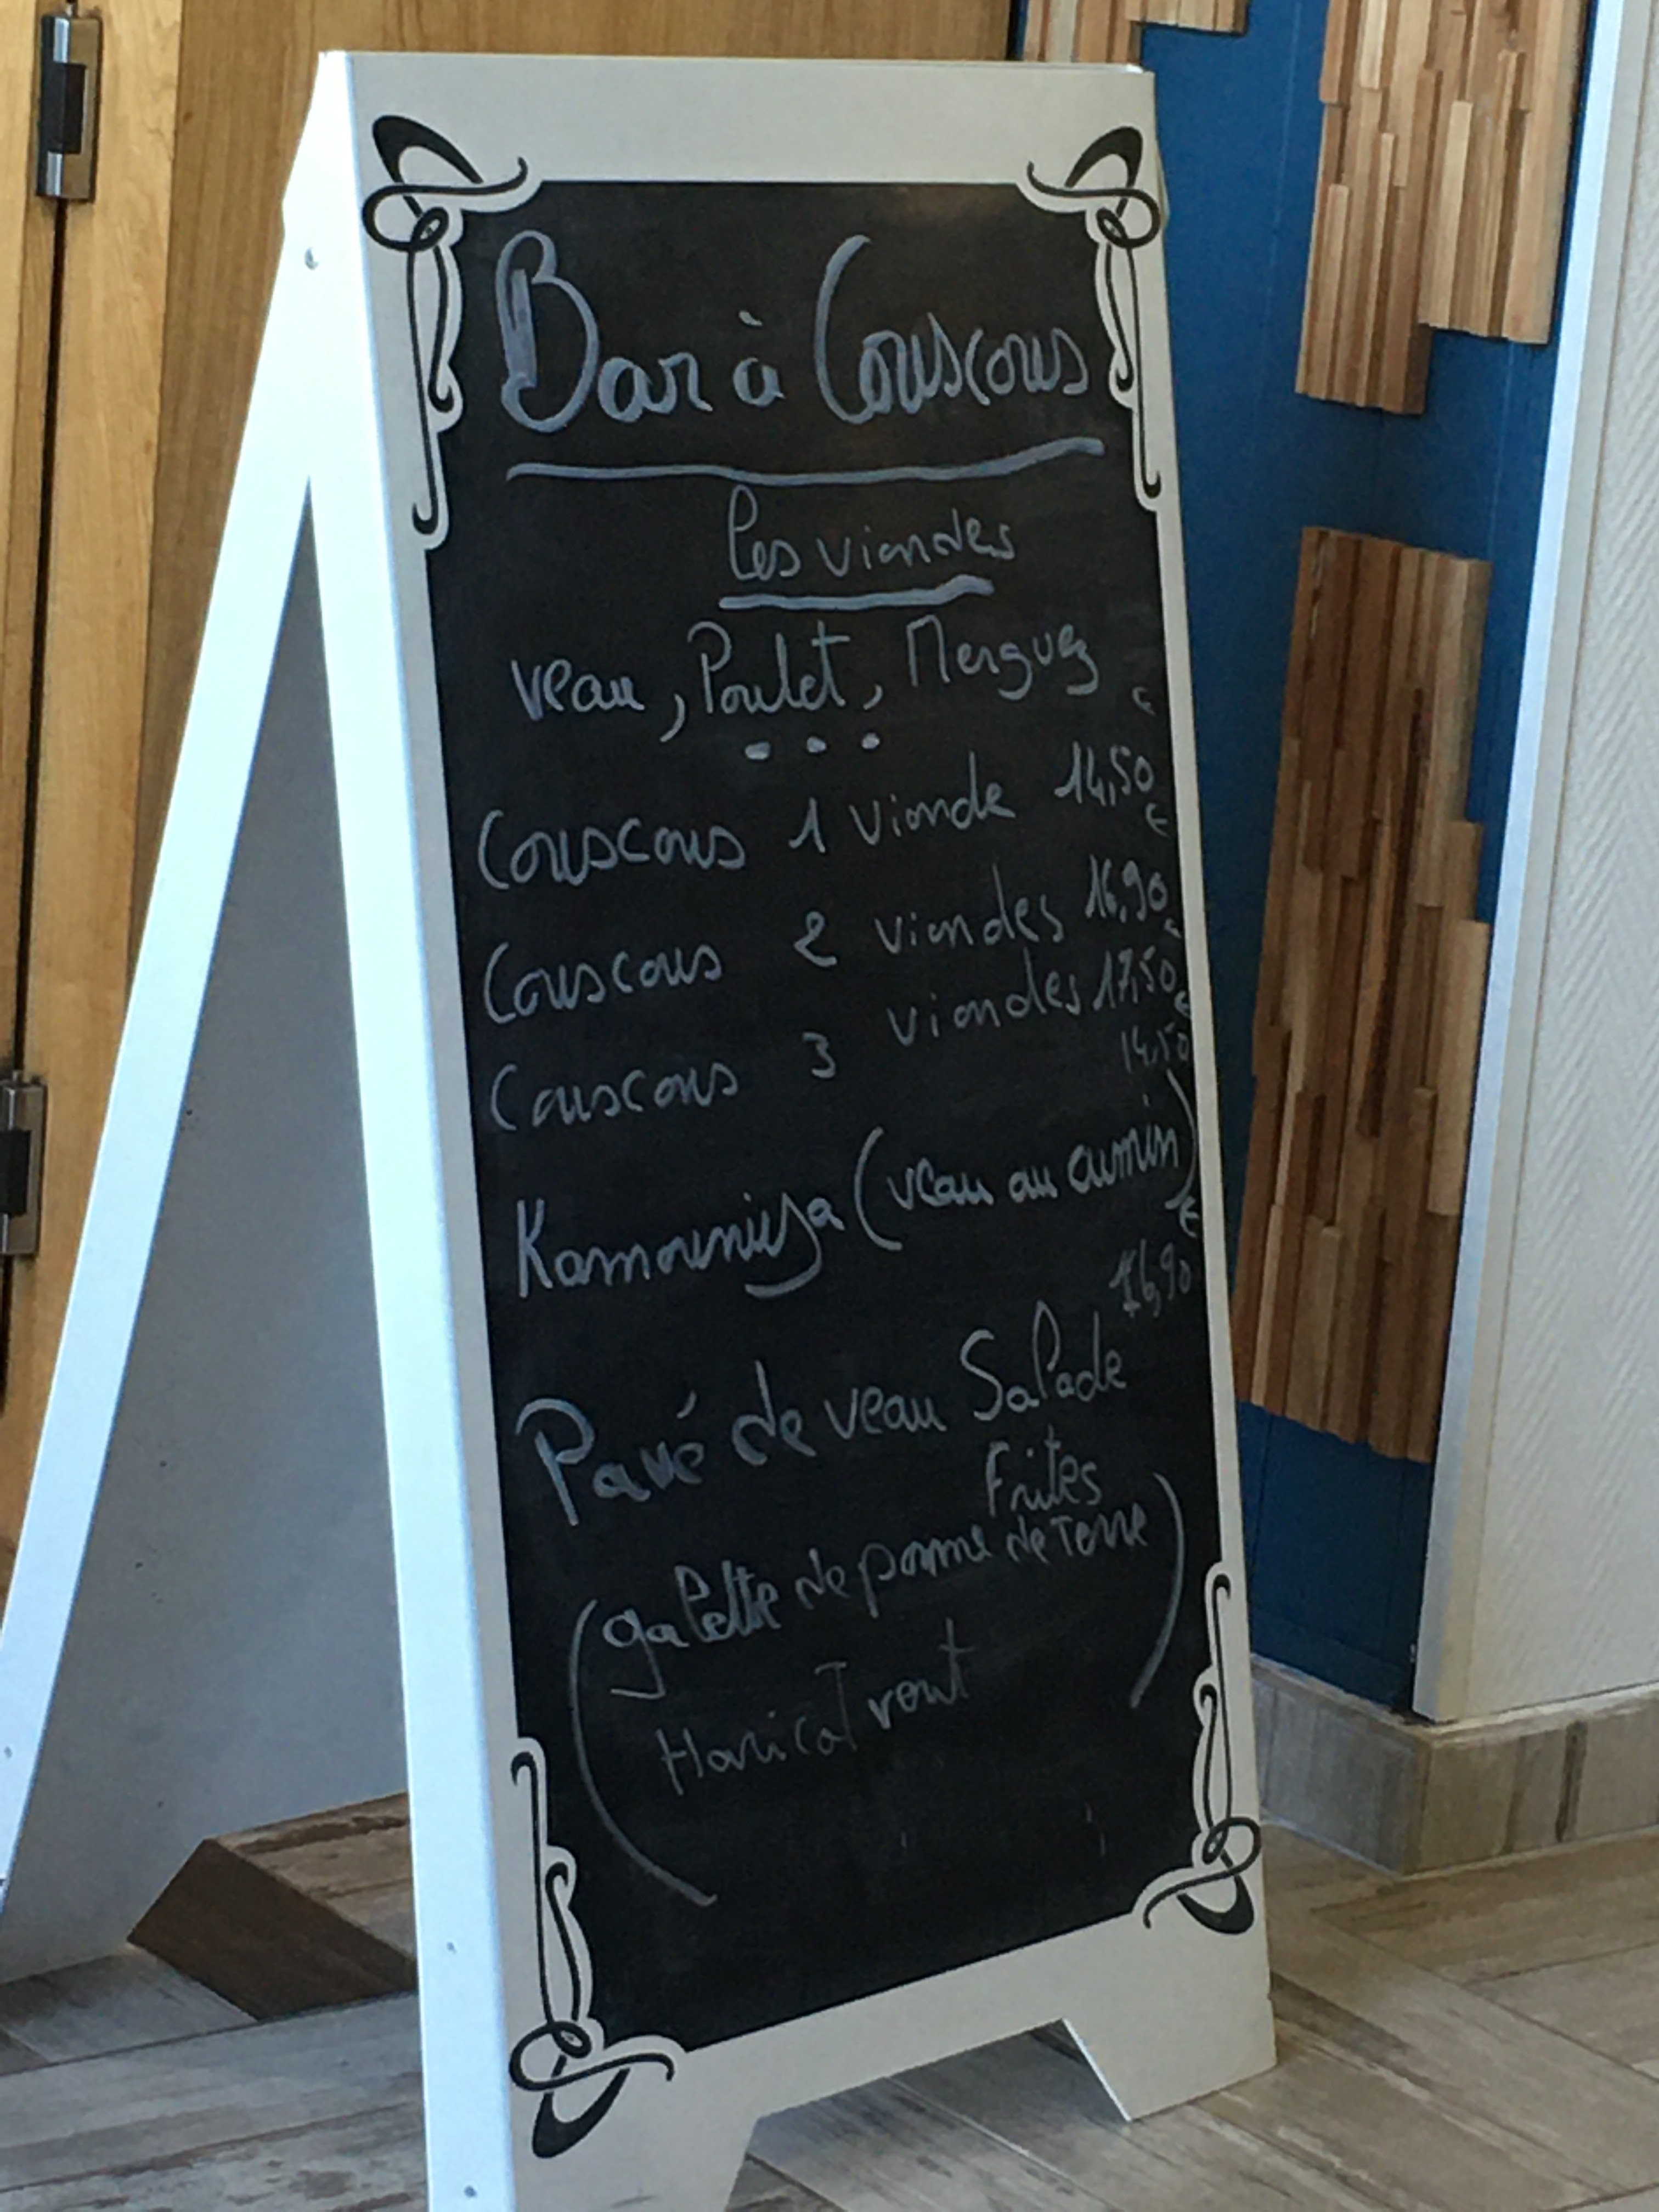 Bar à Couscous
Les viandes
veau, Poulet, Merguez
...
€
Couscous 1 viande 14,50
€
Couscous 2 viandes 16,90
€
Couscous 3 viandes 17,50
€
14,50
Kamouniya (veau au cumin)
€
16,90
Pavé de veau Salade
Frites
(galette de pomme de Terre)
HaricoT vert